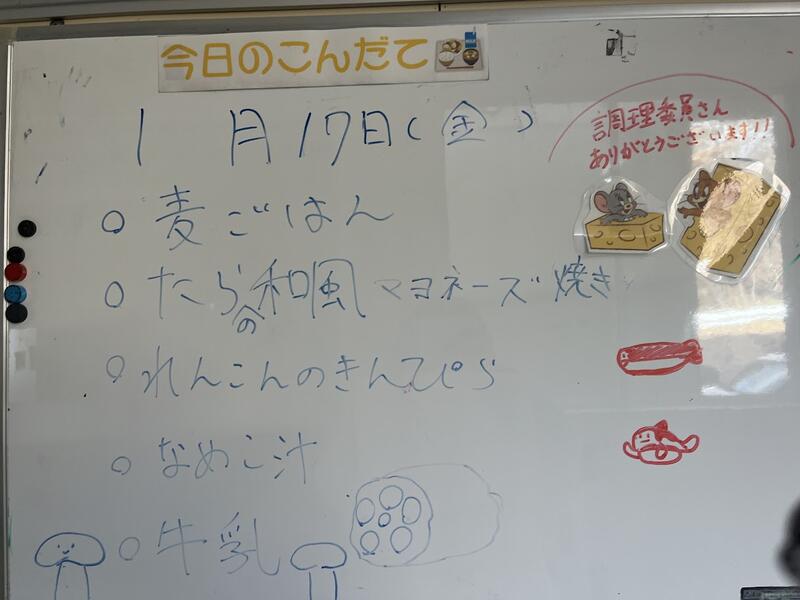 今日のこんだて
1月17日(金)
調理委員さん
ありがとうございます!!
○麦ごはん
○たらの和風マヨネーズ焼き
○れんこんのきんぴら
○なめこ汁
○牛乳